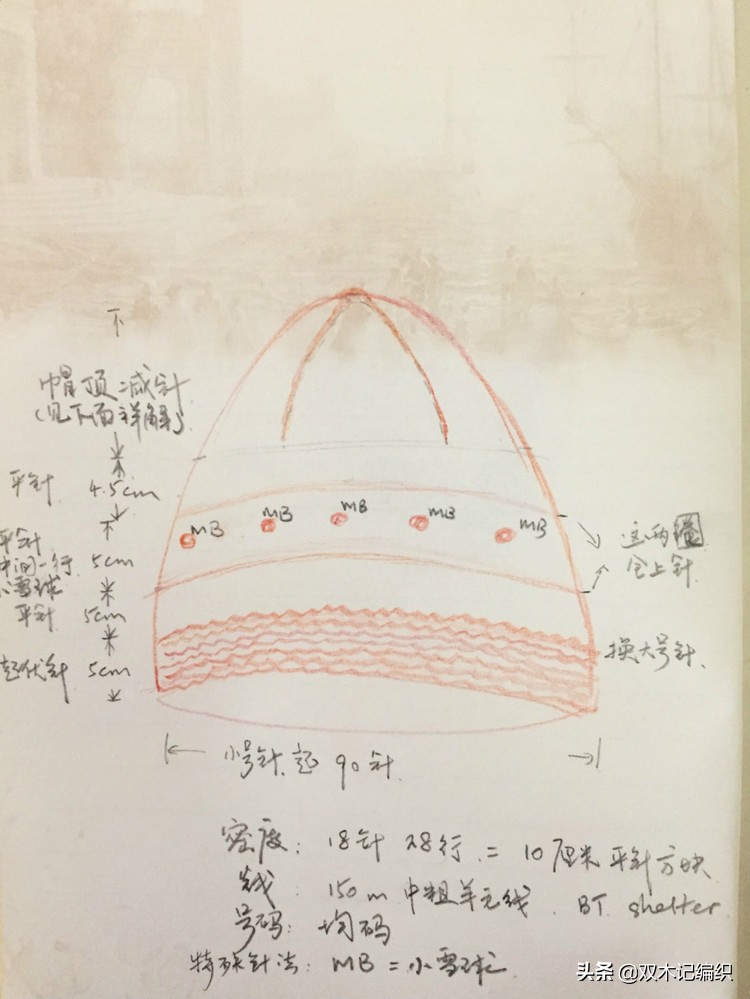 帽顶减针
(见下面详解)
平针 4.5cm
MB MB MB MB MB
平针
中间一行 5cm
小雪球
平针 5cm
起伏针 5cm
这两圈
全上针
换大号针、
小号针、起 90针
密度: 18针 28行 = 10厘米平针方块
线: 150m 中粗羊毛线. BT shelter
号码: 均码
特殊针法: MB = 小雪球
头条 @双木记编织